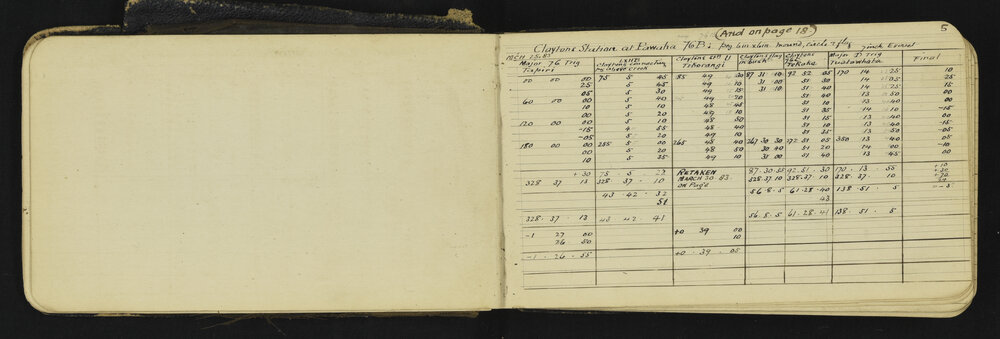 (And on page 18) 5
Claytons Station at Puwaha 76B: peg 6in x 6in. mound, circle & flag 7 inch Everest
MCH 25.83
Major 76 Trig Claytons connection Claytons on II Claytons flag Claytons Major D Trig Final
Taupiri by above creek Tihorangi in bush Pokaka Tuatawhata
00 00 00 75 5 45 85 49 30 87 31 10 92 52 05 170 14 25 10
25 5 45 49 10 31 10 51 30 14 05 25
05 5 30 49 15 31 10 51 40 14 25 15
00 5 40 49 20 51 40 13 50 00
60 00 10 5 10 48 45 51 10 13 40 00
00 5 20 49 10 51 35 14 10 -15
120 00 00 5 10 48 50 51 15 13 40 00
-15 4 55 48 40 51 10 13 40 -15
-05 5 20 49 10 51 35 13 50 -05
180 00 00 255 5 00 265 48 40 267 30 30 272 51 05 350 13 40 00
00 5 20 48 50 30 40 51 20 14 00 -10
10 5 35 49 10 31 00 51 40 13 45 00
+30 75 . 5 . 23 RETAKEN 87 . 30 . 55 92 . 51 . 30 170 . 13 . 55 +10
328 37 13 328 . 37 . 10 MARCH 30 83. 328 . 37 . 10 328 . 37 . 10 328 . 37 . 10
43 . 42 . 32 on Page 56 . 8 . 5 61 . 28 . 40 138 . 51 . 5
51 43
328 . 37 . 13 43 . 42 . 41 56 . 8 . 5 61 . 28 . 41 138 . 51 . 5
-1 27 00 +0 39 00
26 50 10
-1 . 26 . 55 +0 . 39 . 05